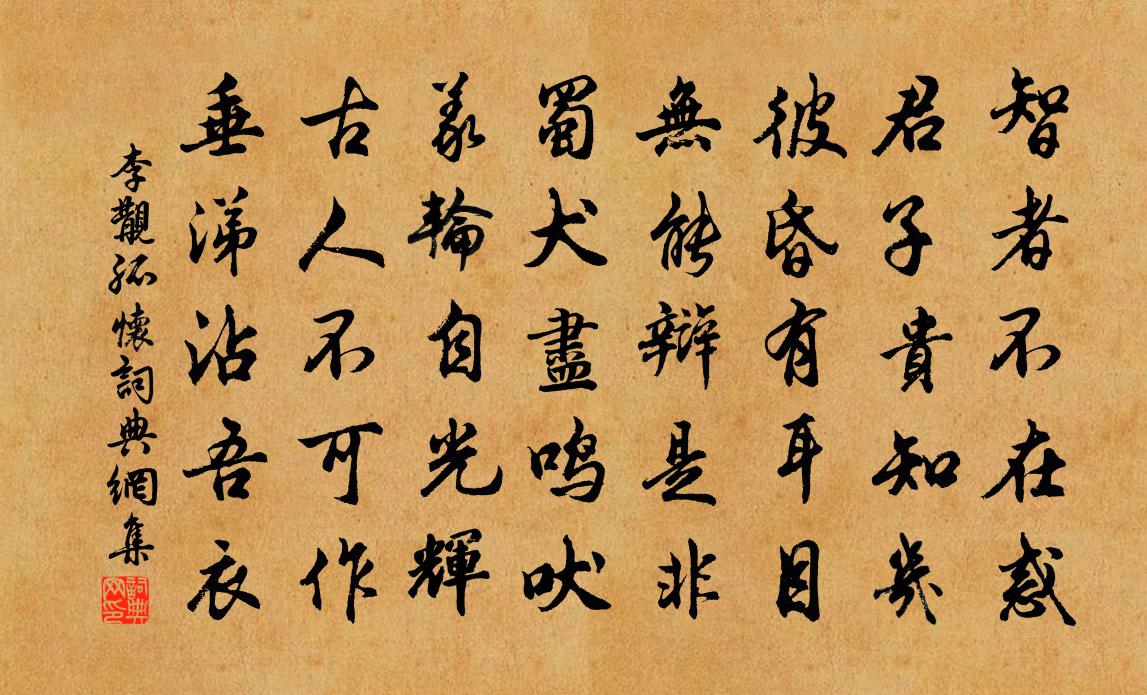 智者不在惑
君子貴知幾
彼昏有耳目
無能辯是非
蜀犬盡鳴吠
羲輪自光輝
古人不可作
垂涕沾吾衣
李觀孤懷詞典網集
詞典網印